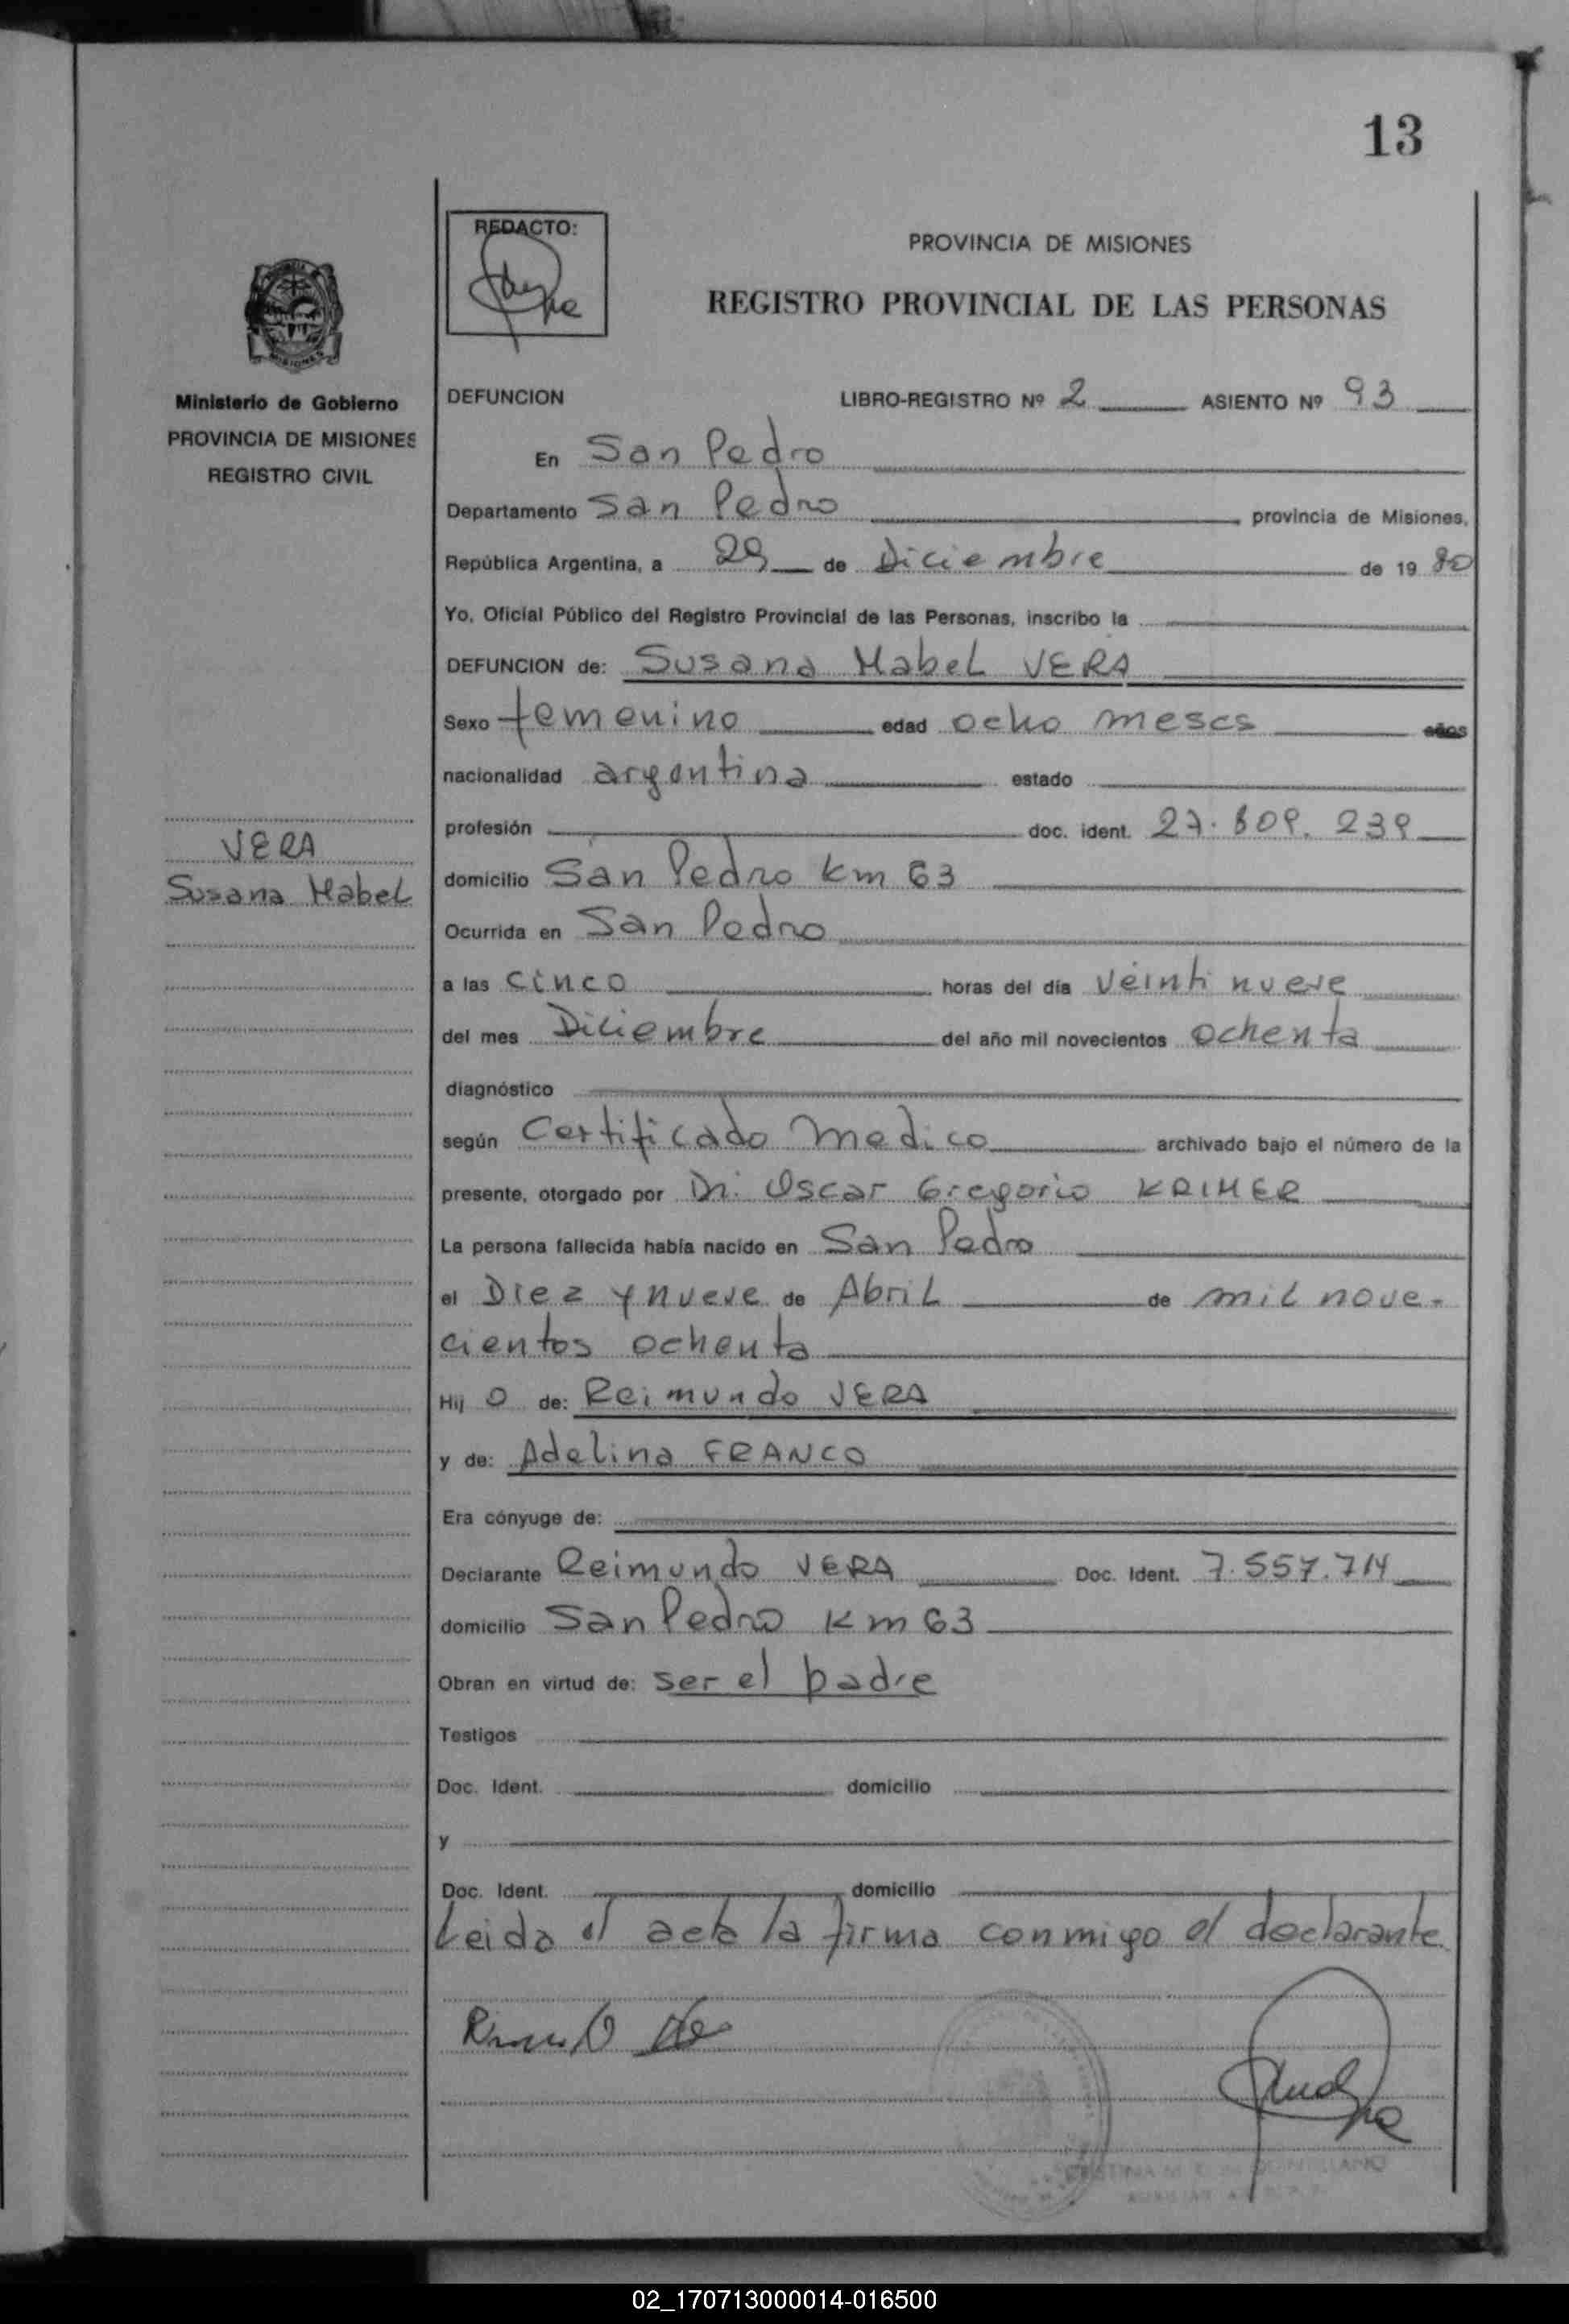 13
REDACTO:
PROVINCIA DE MISIONES
REGISTRO PROVINCIAL DE LAS PERSONAS
MISIONES
Ministerio de Gobierno
PROVINCIA DE MISIONES
REGISTRO CIVIL
DEFUNCION LIBRO-REGISTRO Nº 2 ASIENTO Nº 93
En San Pedro
Departamento San Pedro provincia de Misiones,
República Argentina, a 29 de Diciembre de 19 80
Yo, Oficial Público del Registro Provincial de las Personas, inscribo la
DEFUNCION de: Susana Mabel VERA
Sexo femenino edad ocho meses años
nacionalidad argentina estado
profesión doc. ident. 27.809.239
VERA
Susana Mabel
domicilio San Pedro Km 63
Ocurrida en San Pedro
a las cinco horas del día veinti nueve
del mes Diciembre del año mil novecientos ochenta
diagnóstico
según Certificado Medico archivado bajo el número de la
presente, otorgado por Dr. Oscar Gregorio KRIMER
La persona fallecida había nacido en San Pedro
el Diez y nueve de Abril de mil nove-
cientos ochenta
Hij o de: Reimundo VERA
y de: Adelina FRANCO
Era cónyuge de:
Declarante Reimundo VERA Doc. Ident. 7.557.714
domicilio San Pedro Km 63
Obran en virtud de: ser el padre
Testigos
Doc. Ident. domicilio
y
Doc. Ident. domicilio
Leida el acta la firma conmigo el declarante
02_170713000014-016500